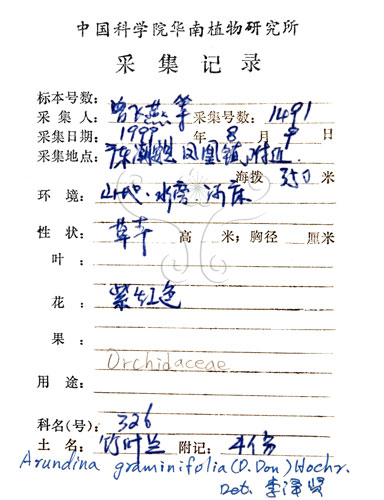 中国科学院华南植物研究所
采集记录
标本号数:
采集人: 曾飞燕等 采集号数: 1491
采集日期: 1999 年 8 月 9 日
采集地点: 广东潮安县凤凰镇附近
海拨 350 米
环境: 山地·水旁·河床
性状: 草本 高 米; 胸径 厘米
叶:
花: 紫红色
果:
Orchidaceae
用途:
科名(号): 326
土名: 竹叶兰 附记: 4份
Arundina graminifolia (D. Don) Hochr.
Det. 李泽贤